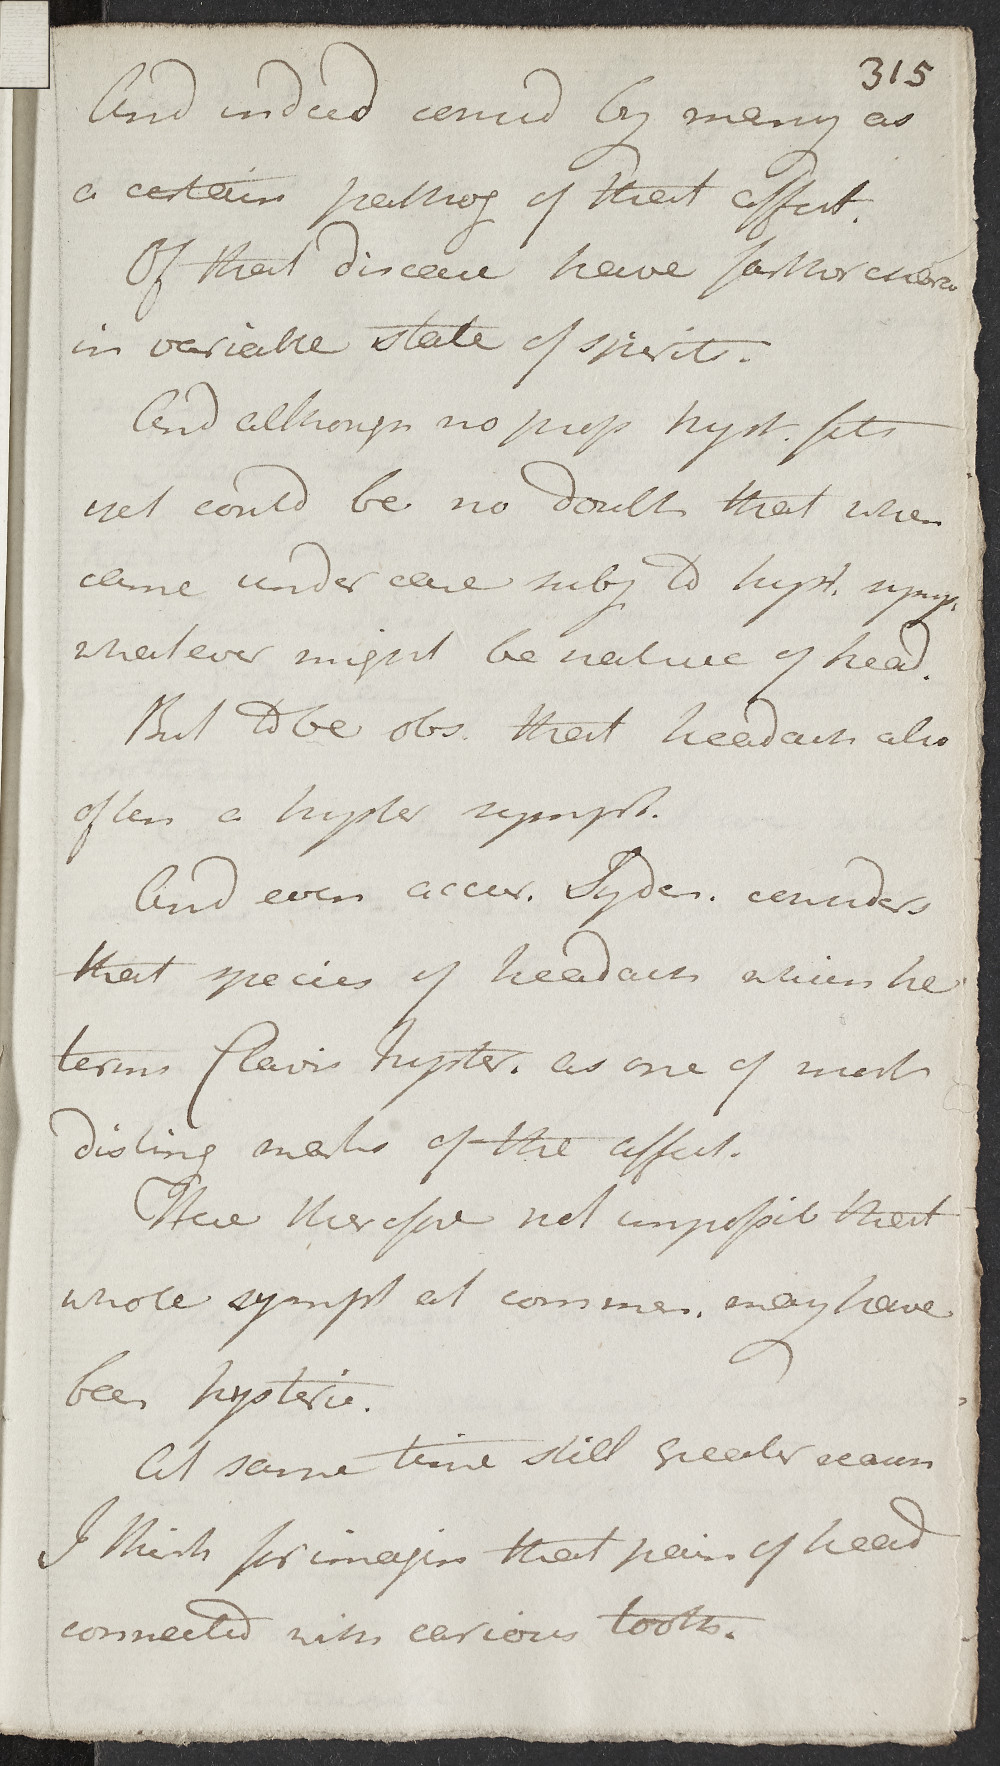 315
And indeed consid by many as
a certain pathog of that affect.
Of that disease have farther
in variable state of spirits.
And although no prop hyst. fits
yet could be no doubt that when
came under care subj to hyst. symp.
whatever might be nature of head.
But to be obs. that headach also
often a hyster sympt.
And even accur. Syden. considers
that species of headach which he
terms Clavis hyster. as one of most
disting marks of the affect.
Here therefore not impossib that
whole sympt at commen. may have
been hysteric.
At same time still greater reason
I think for imagin that pain of head
connected with carious tooth.